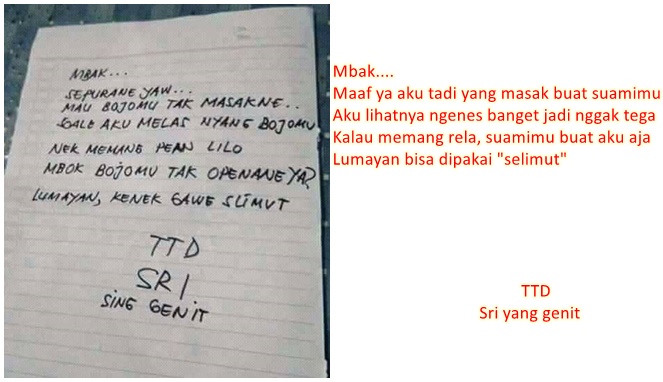 MBAK...
SEPURANE YAW...
MAU BOJOMU TAK MASAKNE..
SOALE AKU MELAS NYANG BOJOMU
NEK MEMANG PEAN LILO
MBOK BOJOMU TAK OPENANE YA?
LUMAYAN, KENEK GAWE SLIMUT
TTD
SRI
SING GENIT
Mbak....
Maaf ya aku tadi yang masak buat suamimu
Aku lihatnya ngenes banget jadi nggak tega
Kalau memang rela, suamimu buat aku aja
Lumayan bisa dipakai "selimut"
TTD
Sri yang genit